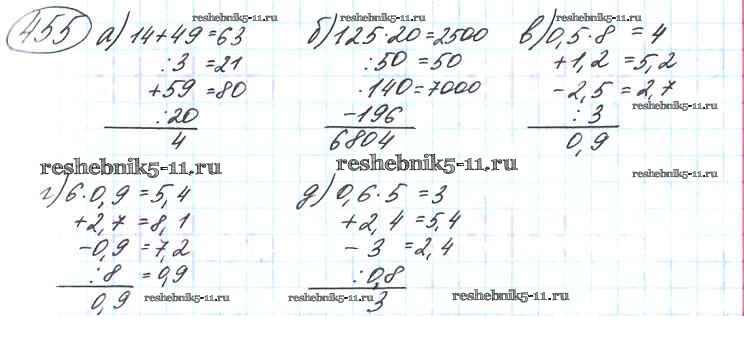 455 а) 14+49=63
:3 =21
+59=80
:20
4
б) 125·20=2500
:50=50
·140=7000
-196
6804
в) 0,5·8 = 4
+1,2 =5,2
-2,5 =2,7
:3
0,9
г) 6·0,9=5,4
+2,7 =8,1
-0,9 =7,2
:8 =0,9
0,9
д) 0,6·5 =3
+2,4=5,4
-3 =2,4
:0,8
3
reshebnik5-11.ru
reshebnik5-11.ru
reshebnik5-11.ru
reshebnik5-11.ru
reshebnik5-11.ru
reshebnik5-11.ru
reshebnik5-11.ru
reshebnik5-11.ru
reshebnik5-11.ru
reshebnik5-11.ru